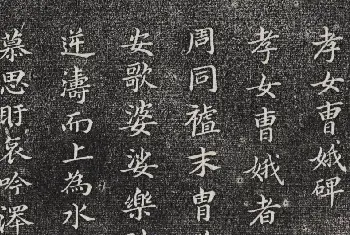 孝女曹娥碑
孝女曹娥者
周同禭末胄
安歌婆娑樂
逆濤而上為水
慕思盱哀吟澤